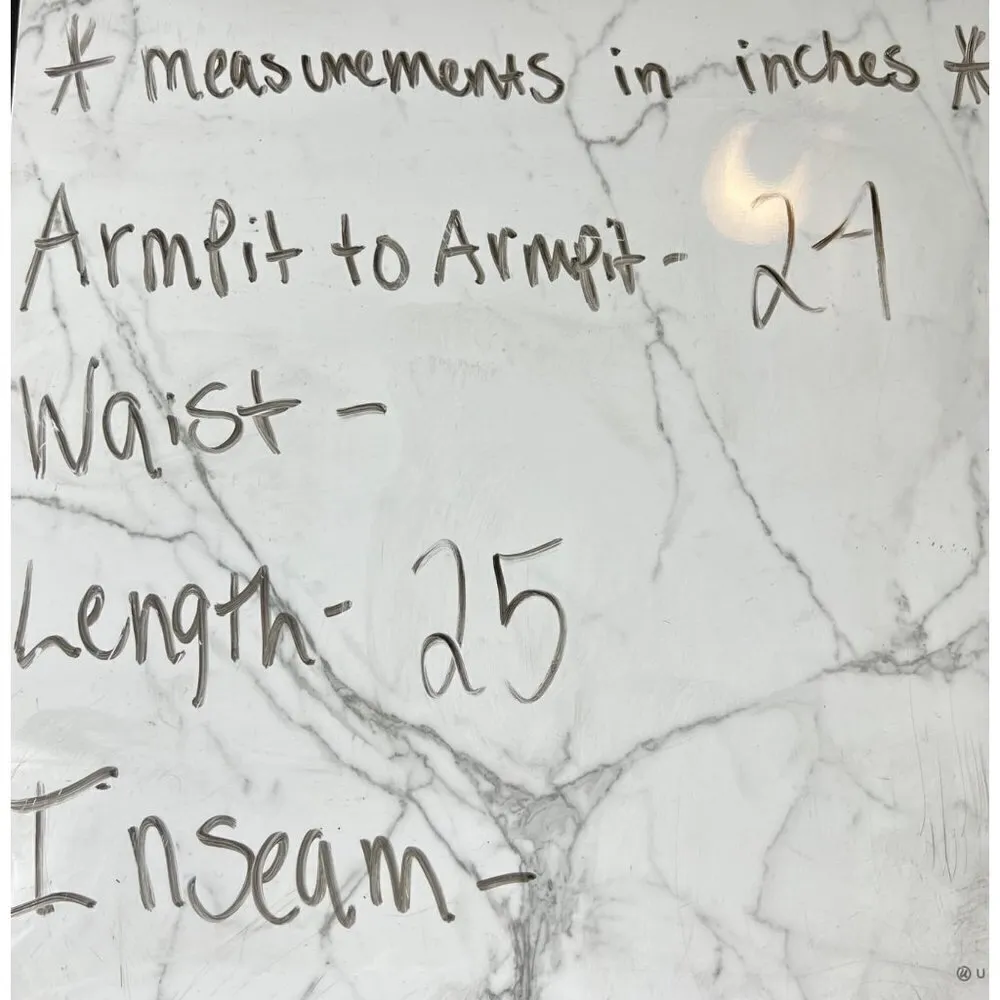 * measurements in inches *
Armpit to Armpit - 24
Waist -
Length - 25
Inseam -
U